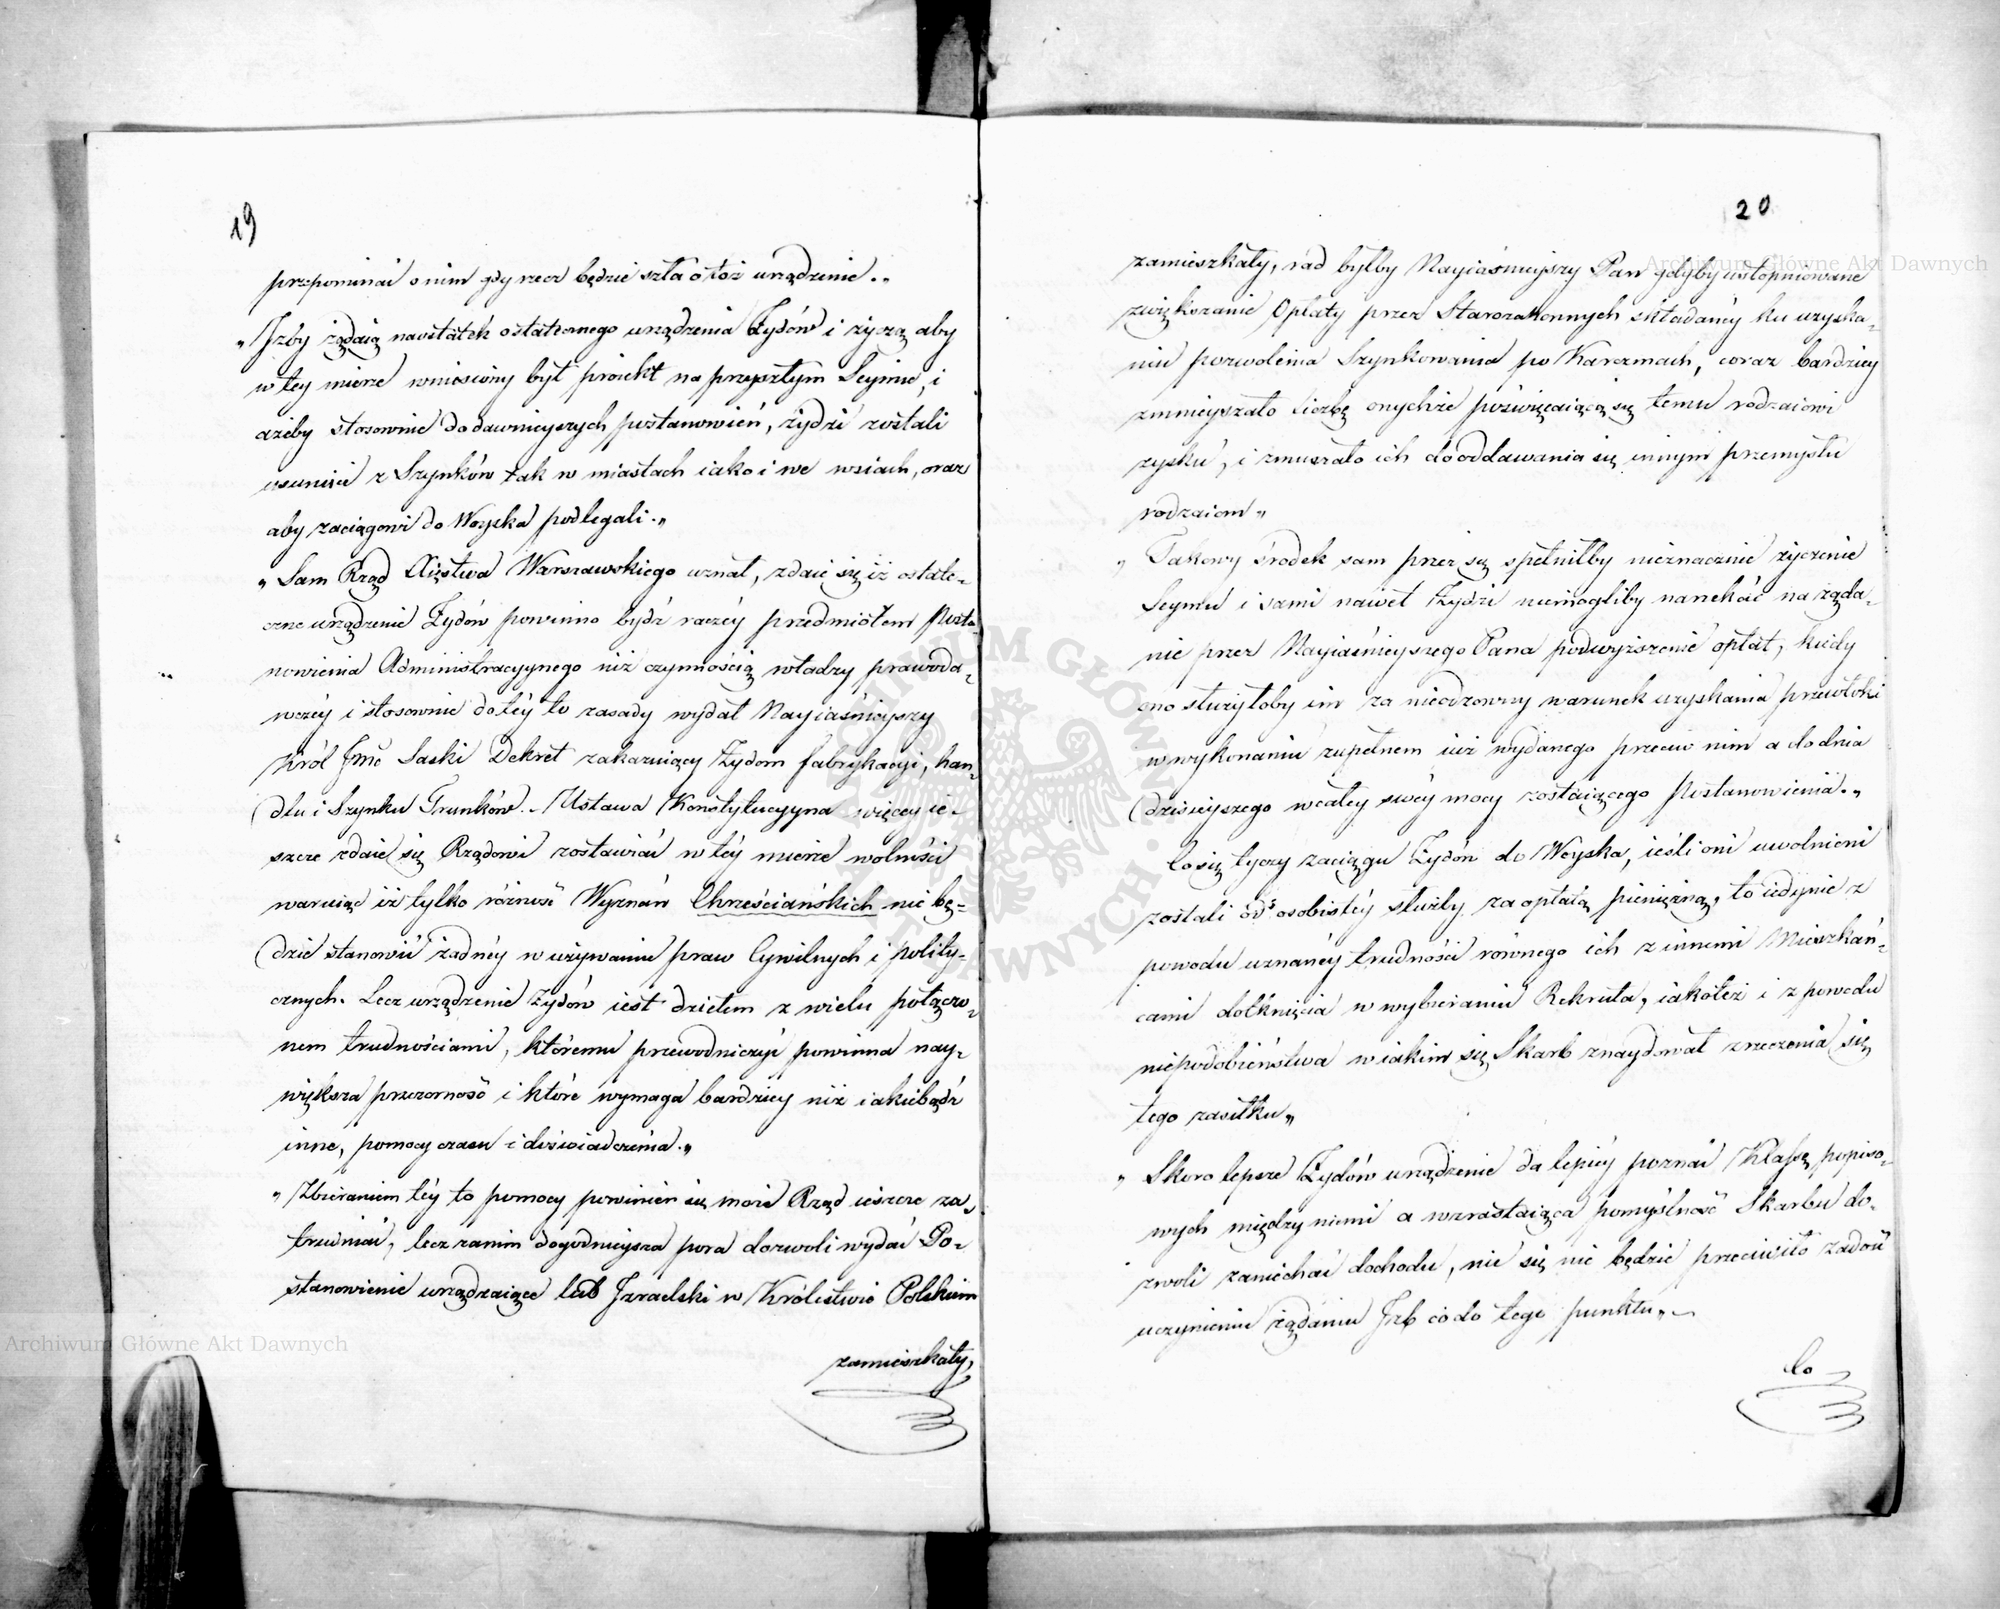 19
przepominać o nim gdy rzecz będzie szła o toż urządzenie.„
„Izby żądaią naostatek ostatecznego urządzenia Żydów i życzą aby
w tey mierze wniesiony był proiekt na przyszłym Seymie, i
ażeby stosownie do dawnieyszych postanowień, żydzi zostali
usunięci z Szynków tak w miastach iako i we wsiach, oraz
aby zaciągowi do Woyska podlegali.„
„Sam Rząd Xięstwa Warszawskiego uznał, zdaie się iż ostate-
czne urządzenie Żydów powinno bydź raczéy przedmiotem Posta-
nowienia Administracyynego niż czynnością władzy prawoda-
wczéy i stosownie do téy to zasady wydał Nayiaśnieyszy
Król Jmć Saski Dekret zakazuiący Żydom fabrykacyi, han-
dlu i Szynku Trunków. Ustawa Konstytucyyna więcey ie-
szcze zdaie się Rządowi zostawiać w téy mierze wolności
waruiąc iż tylko różność Wyznań Chrześciańskich nie bę=
dzie stanowić żadnéy w używaniu praw Cywilnych i polity-
cznych. Lecz urządzenie Żydów iest dziełem z wielu połączo-
nem trudnościami, któremu przewodniczyć powinna nay-
większa przezorność i które wymaga bardziey niż iakiebądź
inne, pomocy czasu i doświadczenia.„
„Zbieraniem téy to pomocy powinien się może Rząd ieszcze za-
trudniać, lecz zanim dogodnieysza pora dozwoli wydać Po-
stanowienie urządzaiące lud Izraelski w Królestwie Polskim
zamieszkały,
20
zamieszkały, rad byłby Nayiaśnieyszy Pan gdyby ustopniowane
zwiększanie Opłaty przez Starozakonnych składanéy ku uzyska-
niu pozwolenia Szynkowania po Karczmach, coraz bardziey
zmnieyszało liczbę onychże poświęcaiącą się temu rodzaiowi
zysku, i zmuszało ich do oddawania się innym przemysłu
rodzaiom„
„Takowy środek sam przez się spełniłby nieznacznie życzenie
Seymu i sami nawet Żydzi niemogliby narzekać na żąda-
nie przez Nayiaśnieyszego Pana podwyższenie opłat, kiedy
ono służyłoby im za nieodzowny warunek uzyskania przewłoki
w wykonaniu zupełnem iuż wydanego przeciw nim a do dnia
dzisieyszego w całey swéy mocy zostaiącego Postanowienia.„
Co się tyczy zaciągu Żydów do Woyska, ieśli oni uwolnieni
zostali od osobistéy służby za opłatą pieniężną, to iedynie z
powodu uznanéy trudności równego ich z innemi Mieszkań-
cami dotknięcia w wybieraniu Rekruta, iakoteż i z powodu
niepodobieństwa w iakim się Skarb znaydował zrzeczenia się
tego zasiłku„
„Skoro lepsze Żydów urządzenie da lepiéy poznać Klassę popiso-
wych między niemi a wzrastaiąca pomyślność Skarbu do-
zwoli zaniechać dochodu, nic się nie będzie przeciwiło zadość
uczynieniu żądaniu Izb co do tego punktu„
Co
Archiwum Główne Akt Dawnych
Archiwum Główne Akt Dawnych
ARCHIWUM GŁÓWNE AKT DAWNYCH